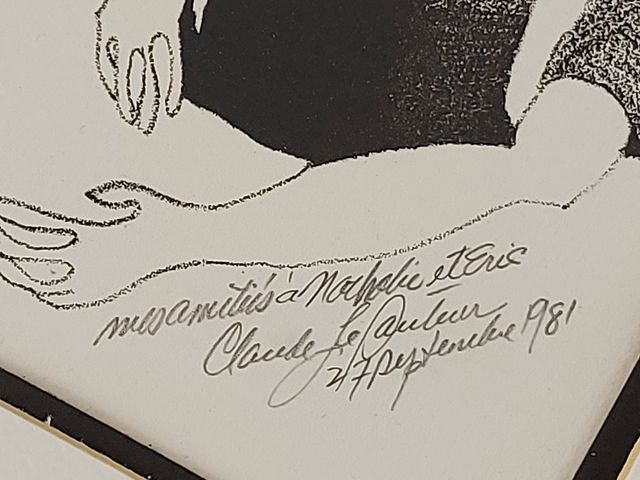 mes amitiés à Nathalie et Eric
Claude Le Sauteur
27 septembre 1981